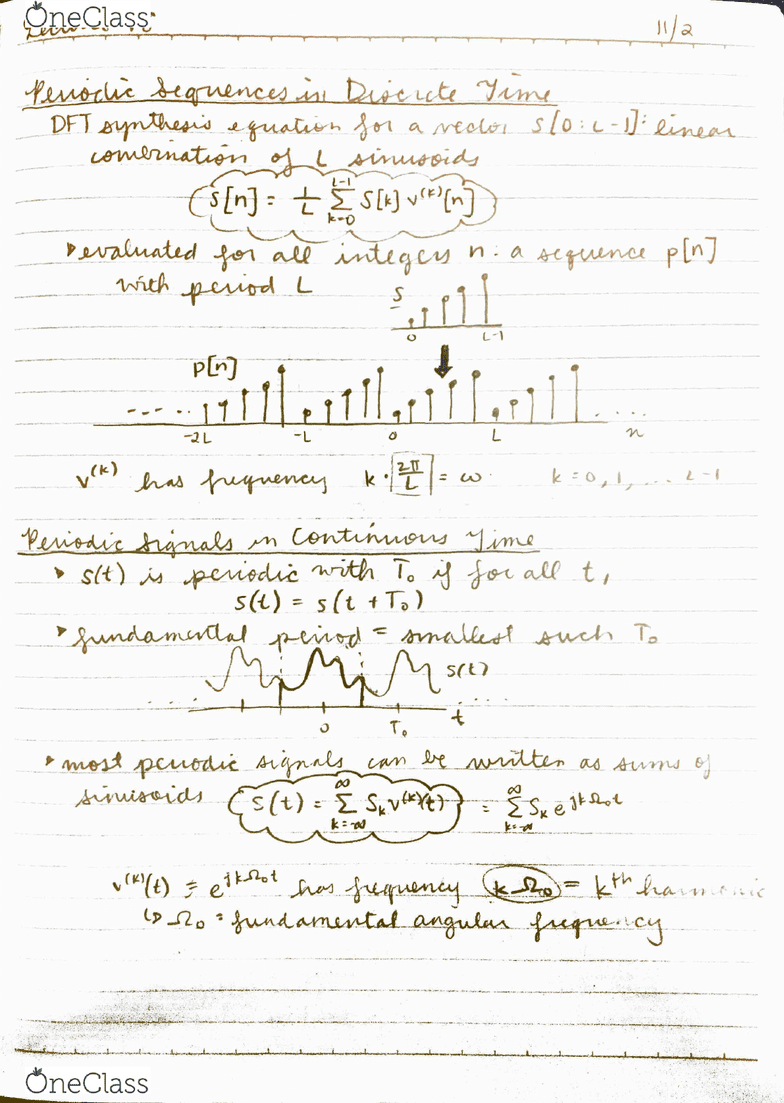 OneClass
11/2
Periodic Sequences in Discrete Time
DFT synthesis equation for a vector s[0:L-1]: linear
combination of L sinusoids
s[n] = 1/L Σ_{k=0}^{L-1} S[k] v^(k)[n]
‣ evaluated for all integers n: a sequence p[n]
with period L
s
0 L-1
p[n]
-2L -L 0 L n
v^(k) has frequency k·|2π/L| = ω k=0, 1, ... L-1
Periodic Signals in Continuous Time
‣ s(t) is periodic with T₀ if for all t,
s(t) = s(t + T₀)
‣ fundamental period = smallest such T₀
s(t)
0 T₀ t
‣ most periodic signals can be written as sums of
sinusoids s(t) = Σ_{k=-∞}^{∞} S_k v^(k)(t) = Σ_{k=-∞}^{∞} S_k e^{jkΩ₀t}
v^(k)(t) = e^{jkΩ₀t} has frequency kΩ₀ = kth harmonic
↳ Ω₀ = fundamental angular frequency
OneClass